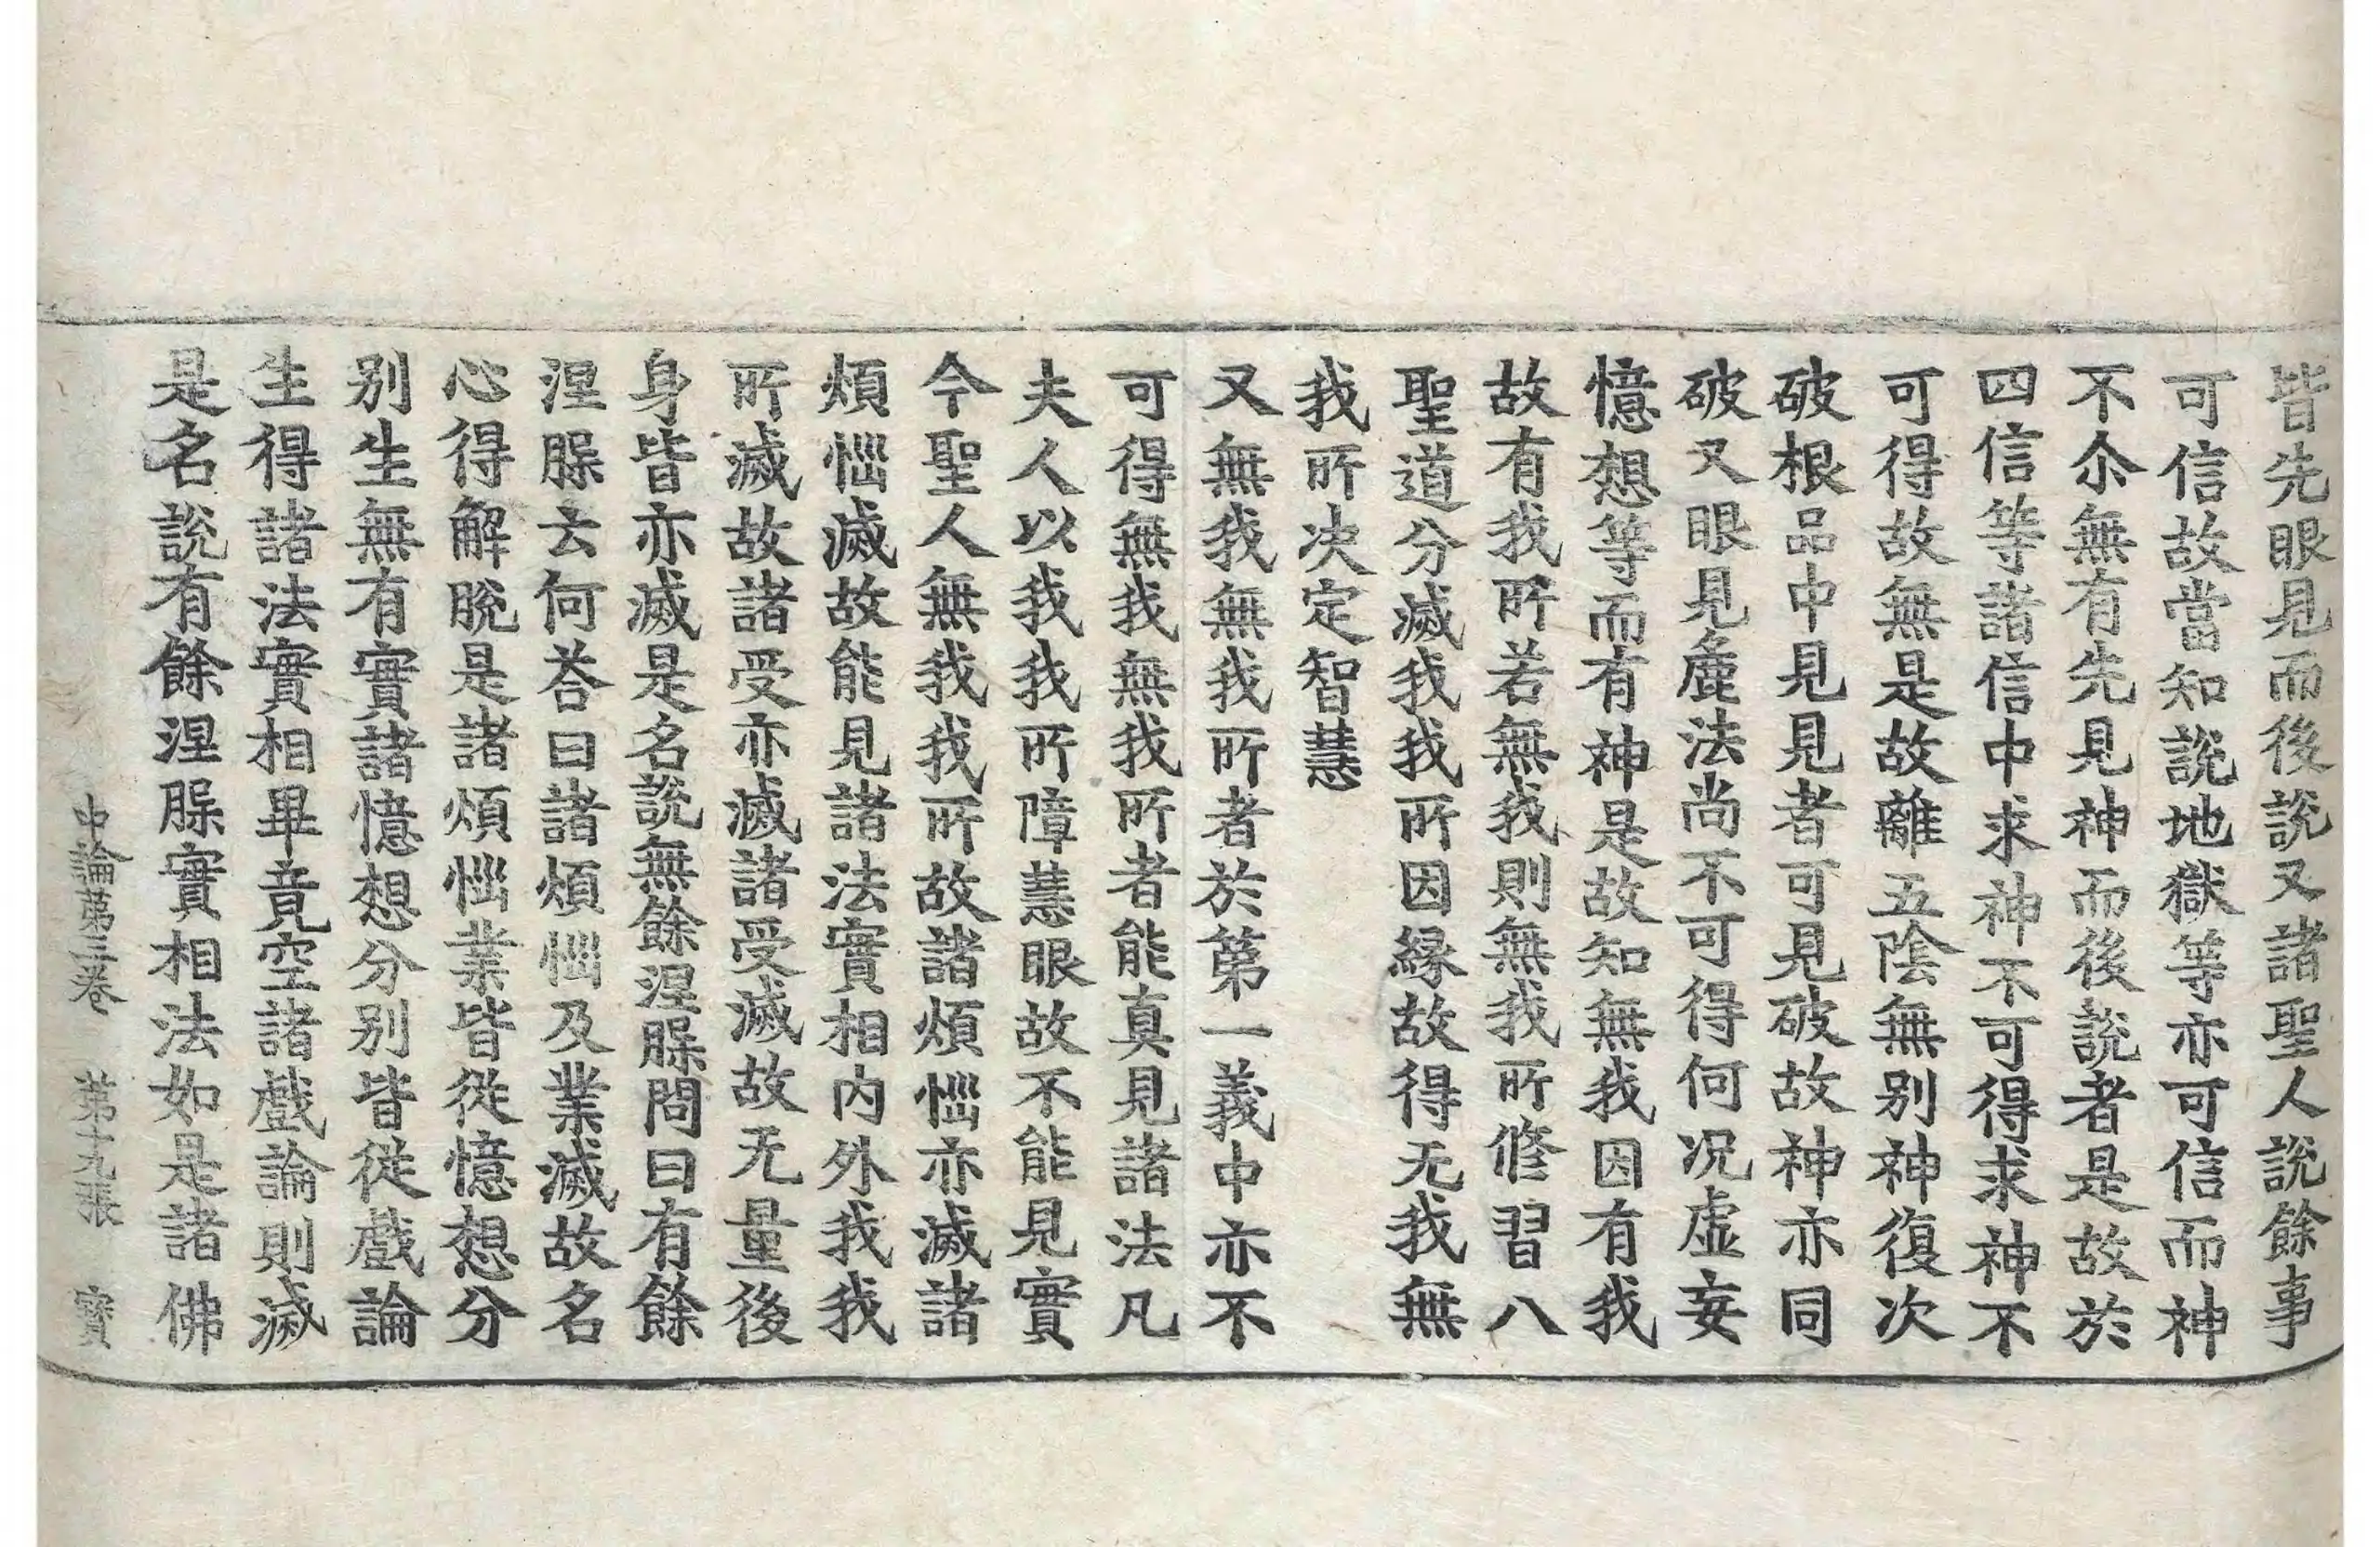 皆先眼見而後說又諸聖人說餘事
可信故當知說地獄等亦可信而神
不尒無有先見神而後說者是故於
四信等諸信中求神不可得求神不
可得故無是故離五陰無別神復次
破根品中見見者可見破故神亦同
破又眼見麁法尚不可得何况虛妄
憶想等而有神是故知無我因有我
故有我所若無我則無我所修習八
聖道分滅我我所因緣故得无我無
我所决定智慧
又無我無我所者於第一義中亦不
可得無我無我所者能真見諸法凡
夫人以我我所障慧眼故不能見實
今聖人無我我所故諸煩惱亦滅諸
煩惱滅故能見諸法實相內外我我
所滅故諸受亦滅諸受滅故无量後
身皆亦滅是名說無餘涅槃問曰有餘
涅槃云何荅曰諸煩惱及業滅故名
心得解脫是諸煩惱業皆從憶想分
別生無有實諸憶想分別皆從戲論
生得諸法實相畢竟空諸戲論則滅
是名說有餘涅槃實相法如是諸佛
中論第三卷 第十九張 寶